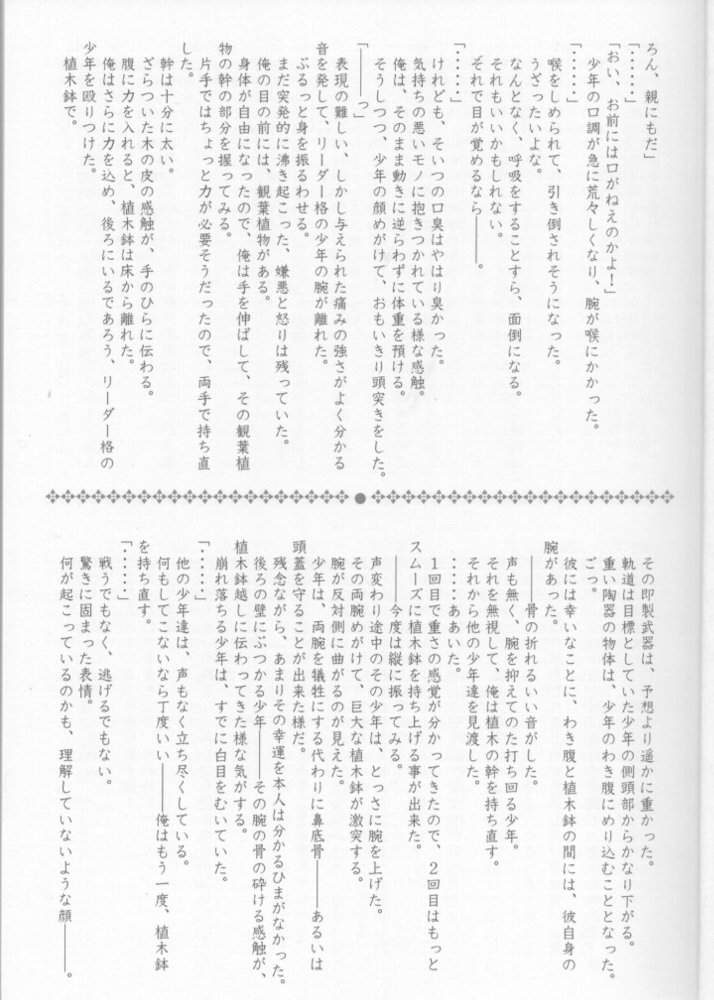 ろん、親にもだ」
「おい、お前には口がねえのかよ!」
少年の口調が急に荒々しくなり、腕が喉にかかった。
「・・・・・」
喉をしめられて、引き倒されそうになった。
うざったいよな。
なんとなく、呼吸をすることすら、面倒になる。
それもいいかもしれない。
それで目が覚めるなら――。
「・・・・・」
けれども、そいつの口臭はやはり臭かった。
気持ちの悪いモノに抱きつかれている様な感触。
俺は、そのまま動きに逆らわずに体重を預ける。
そうしつつ、少年の顔めがけて、おもいきり頭突きをした。
「――――っ」
表現の難しい、しかし与えられた痛みの強さがよく分かる
音を発して、リーダー格の少年の腕が離れた。
ぶるっと身を振るわせる。
まだ突発的に沸き起こった、嫌悪と怒りは残っていた。
俺の目の前には、観葉植物がある。
身体が自由になったので、俺は手を伸ばして、その観葉植
物の幹の部分を握ってみる。
片手ではちょっと力が必要そうだったので、両手で持ち直
した。
幹は十分に太い。
ざらついた木の皮の感触が、手のひらに伝わる。
腹に力を入れると、植木鉢は床から離れた。
俺はさらに力を込め、後ろにいるであろう、リーダー格の
少年を殴りつけた。
植木鉢で。
その即製武器は、予想より遥かに重かった。
軌道は目標としていた少年の側頭部からかなり下がる。
重い陶器の物体は、少年のわき腹にめり込むこととなった。
ごっ。
彼には幸いなことに、わき腹と植木鉢の間には、彼自身の
腕があった。
――骨の折れるいい音がした。
声も無く、腕を抑えてのた打ち回る少年。
それを無視して、俺は植木の幹を持ち直す。
それから他の少年達を見渡した。
・・・・ああいた。
1回目で重さの感覚が分かってきたので、2回目はもっと
スムーズに植木鉢を持ち上げる事が出来た。
――今度は縦に振ってみる。
声変わり途中のその少年は、とっさに腕を上げた。
その両腕めがけて、巨大な植木鉢が激突する。
腕が反対側に曲がるのが見えた。
少年は、両腕を犠牲にする代わりに鼻底骨――あるいは
頭蓋を守ることが出来た様だ。
残念ながら、あまりその幸運を本人は分かるひまがなかった。
後ろの壁にぶつかる少年――その腕の骨の砕ける感触が、
植木鉢越しに伝わってきた様な気がする。
崩れ落ちる少年は、すでに白目をむいていた。
「・・・・・」
他の少年達は、声もなく立ち尽くしている。
何もしてこないなら丁度いい――俺はもう一度、植木鉢
を持ち直す。
「・・・・・」
戦うでもなく、逃げるでもない。
驚きに固まった表情。
何が起こっているのかも、理解していないような顔――。